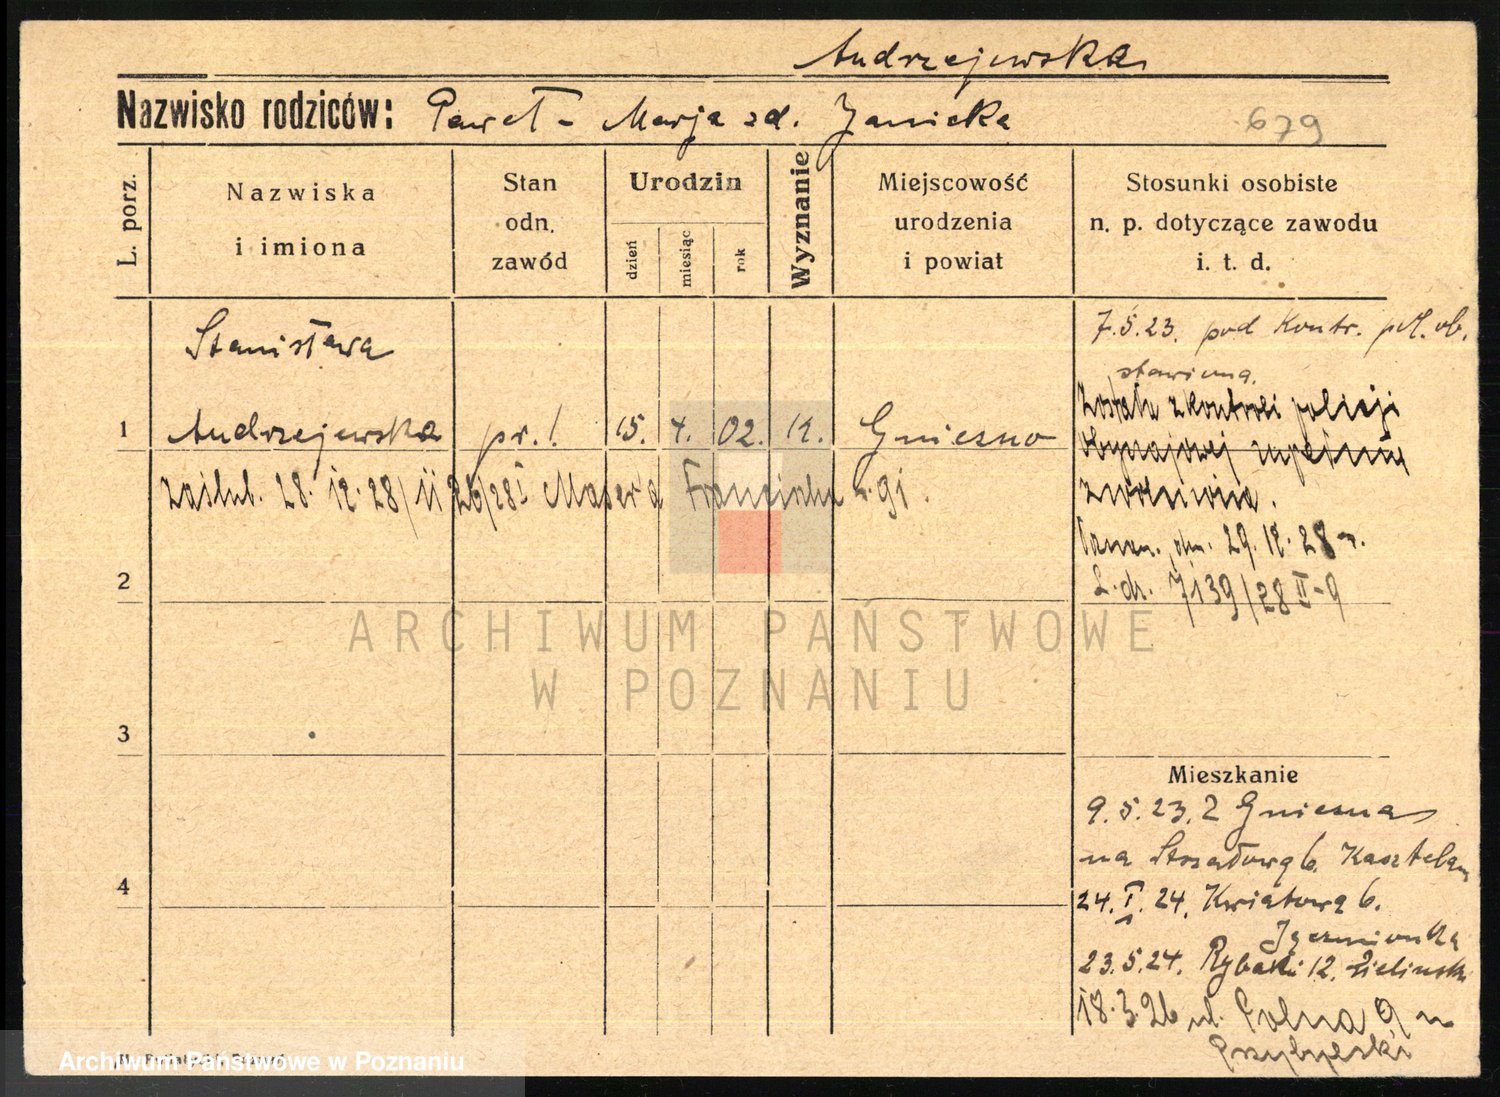 Andrzejewska
Nazwisko rodziców: Paweł - Marja zd. Janicka 679
L. porz.
Nazwiska
i imiona
Stan
odn.
zawód
Urodzin
dzień
miesiąc
rok
Wyznanie
Miejscowość
urodzenia
i powiat
Stosunki osobiste
n. p. dotyczące zawodu
i. t. d.
Stanisława
1 Andrzejewska pr.! 15. 4. 02. Gniezno
zaślub. 28. 12. 28/II 26/28
2
3
4
7.5.23. pod Kontr. pol. ob.
stawiona.
Została z kontroli policji
obyczajowej zupełnie
zwolniona.
Poznań, dn. 29. 12. 28 r.
L. dz. 7139/28 II-9
Mieszkanie
9.5.23. Z Gniezna
na Strzałową 6. Kasztelan
24.I.24. Kwiatową 6.
23.5.24. Rybaki 12. Zielinski
18.3.26 ul. Polna 9 u
Przybylski
ARCHIWUM PAŃSTWOWE
W POZNANIU
Archiwum Państwowe w Poznaniu